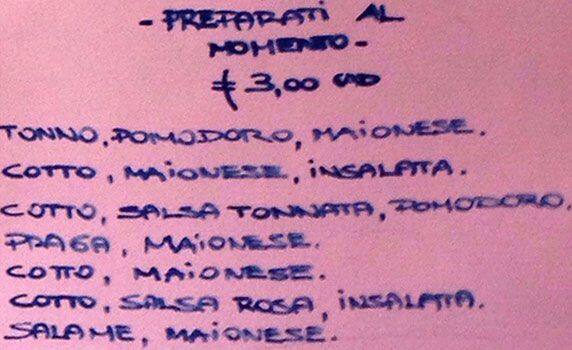 - PREPARATI AL
MOMENTO -
€ 3,00 CAD
TONNO, POMODORO, MAIONESE.
COTTO, MAIONESE, INSALATA.
COTTO, SALSA TONNATA, POMODORO.
PRAGA, MAIONESE.
COTTO, MAIONESE.
COTTO, SALSA ROSA, INSALATA.
SALAME, MAIONESE.